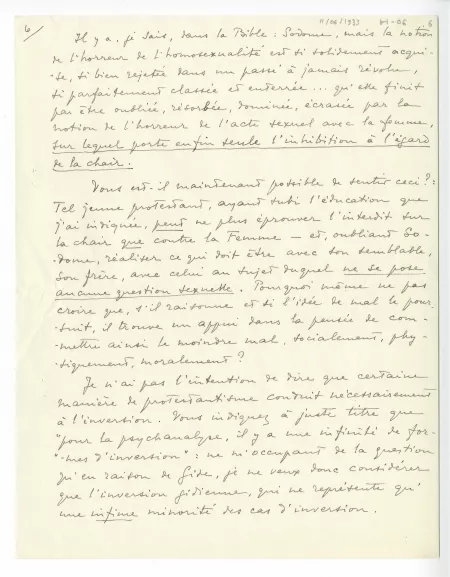 11/06/1933 6
6/
Il y a, je sais, dans la Bible : Sodome, mais la notion
de l'horreur de l'homosexualité est si solidement acqui-
-se, si bien rejetée dans un passé à jamais révolu,
si parfaitement classée et enterrée... qu'elle finit
par être oubliée, résorbée, dominée, écrasée par la
notion de l'horreur de l'acte sexuel avec la femme,
sur lequel porte enfin seule l'inhibition à l'égard
de la chair.
Vous est-il maintenant possible de sentir ceci ? :
Tel jeune protestant, ayant subi l'éducation que
j'ai indiquée, peut ne plus éprouver l'interdit sur
la chair que contre la Femme — et, oubliant So-
-dome, réaliser ce qui doit être avec son semblable,
son frère, avec celui au sujet duquel ne se pose
aucune question sexuelle. Pourquoi même ne pas
croire que, s'il raisonne et si l'idée de mal le pour-
-suit, il trouve un appui dans la pensée de com-
-mettre ainsi le moindre mal, socialement, phy-
-siquement, moralement ?
Je n'ai pas l'intention de dire que certaine
manière de protestantisme conduit nécessairement
à l'inversion. Vous indiquez à juste titre que
"pour la psychanalyse, il y a une infinité de for-
"-mes d'inversion" : ne m'occupant de la question
qu'en raison de Gide, je ne veux donc considérer
que l'inversion gidienne, qui ne représente qu'
une infime minorité des cas d'inversion.